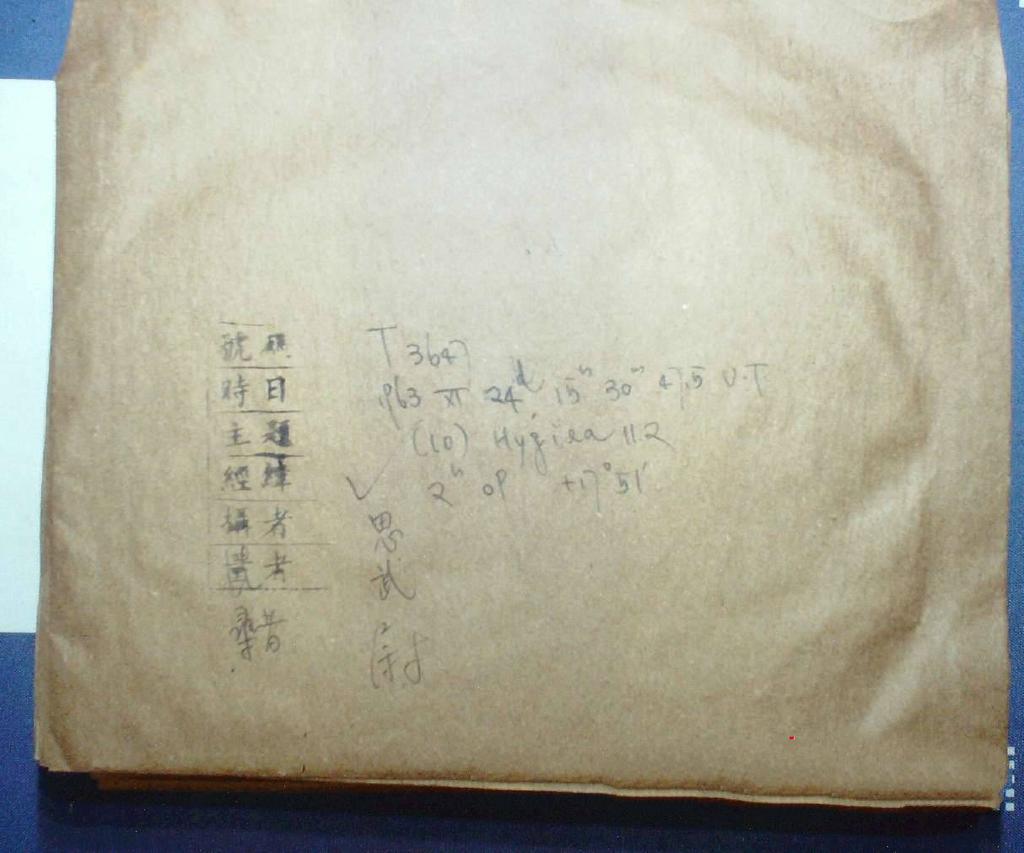 號碼 T 3647
時日 1963 XI 24ᵈ 15ʰ 30ᵐ 47.5 U.T
主題 (10) Hygiea 11.2
經緯 2ʰ 09 +17°51'
攝者 思
者 武